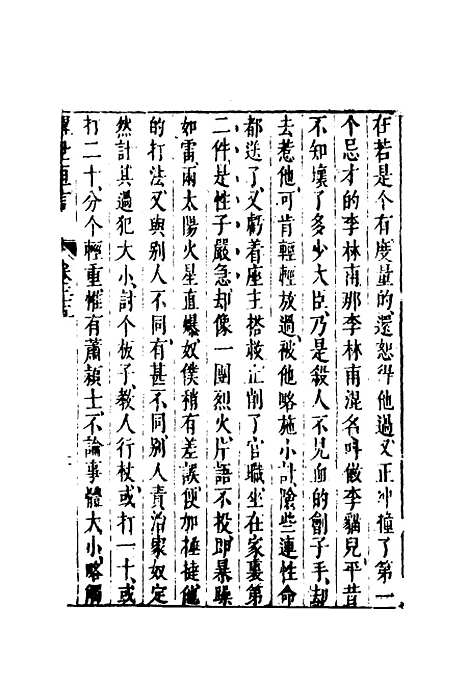 在若是个有度量的還恕得他過又正冲撞了第一
个忌才的李林甫那李林甫混名叫做李猫兒平昔
不知壞了多少大臣乃是殺人不見血的劊子手却
去惹他可肯輕輕放過被他略施小計險些連性命
都送了又虧着座主搭救止削了官職坐在家裏第
二件是性子嚴急却像一團烈火片語不投即暴躁
如雷兩太陽火星直爆奴僕稍有差誤便加捶撻他
的打法又與别人不同有甚不同别人責治家奴定
然計其過犯大小討个板子教人行杖或打一十或
打二十分个輕重惟有蕭穎士不論事體大小略觸
醒世恒言
卷三十五